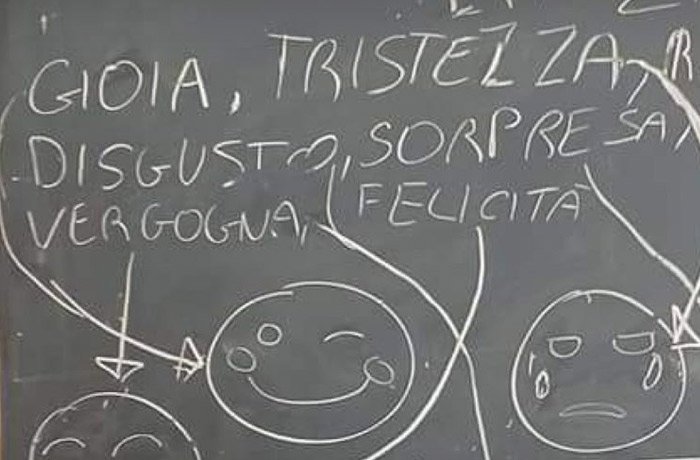 GIOIA, TRISTEZZA, R
DISGUSTO, SORPRESA,
VERGOGNA, FELICITÀ